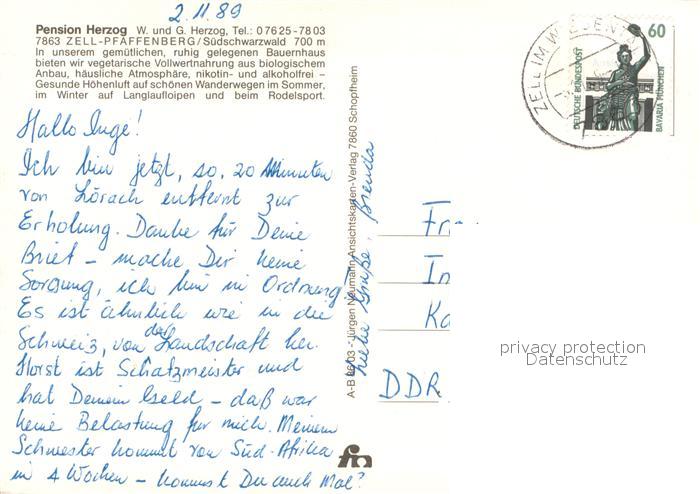 2.11.89
Pension Herzog W. und G. Herzog, Tel.: 07625-7803
7863 ZELL-PFAFFENBERG/Südschwarzwald 700 m
In unserem gemütlichen, ruhig gelegenen Bauernhaus
bieten wir vegetarische Vollwertnahrung aus biologischem
Anbau, häusliche Atmosphäre, nikotin- und alkoholfrei –
Gesunde Höhenluft auf schönen Wanderwegen im Sommer,
im Winter auf Langlaufloipen und beim Rodelsport.
Hallo Inge!
Ich bin jetzt, so. 20 Minuten
von Lörach entfernt zur
Erholung. Danke für Deine
Brief – mache Dir keine
Sorgung, ich bin in Ordnung
Es ist ähnlich wie in die
Schweiz, von der Landschaft her.
Horst ist Schatzmeister und
hat Deinem Geld – daß war
keine Belastung für mich. Meinem
Schwester kommt von Süd-Afrika
in 4 Wochen – kommst Du auch Mal?
liebe Grüße, Brenda
A-B 8603 - Jürgen Neumann Ansichtskarten-Verlag 7860 Schopfheim
fn
ZELL IM WIESENTAL
60
DEUTSCHE BUNDESPOST
BAVARIA MÜNCHEN
Fr
In
Ka
DDR
privacy protection
Datenschutz